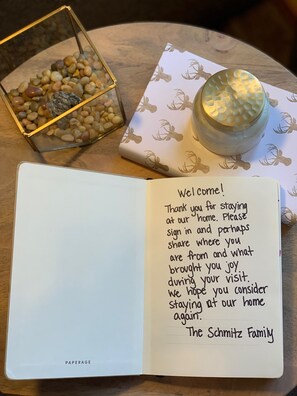 Welcome!
Thank you for staying
at our home. Please
sign in and perhaps
share where you
are from and what
brought you joy
during your visit.
We hope you consider
staying at our home
again.
The Schmitz Family
PAPERAGE